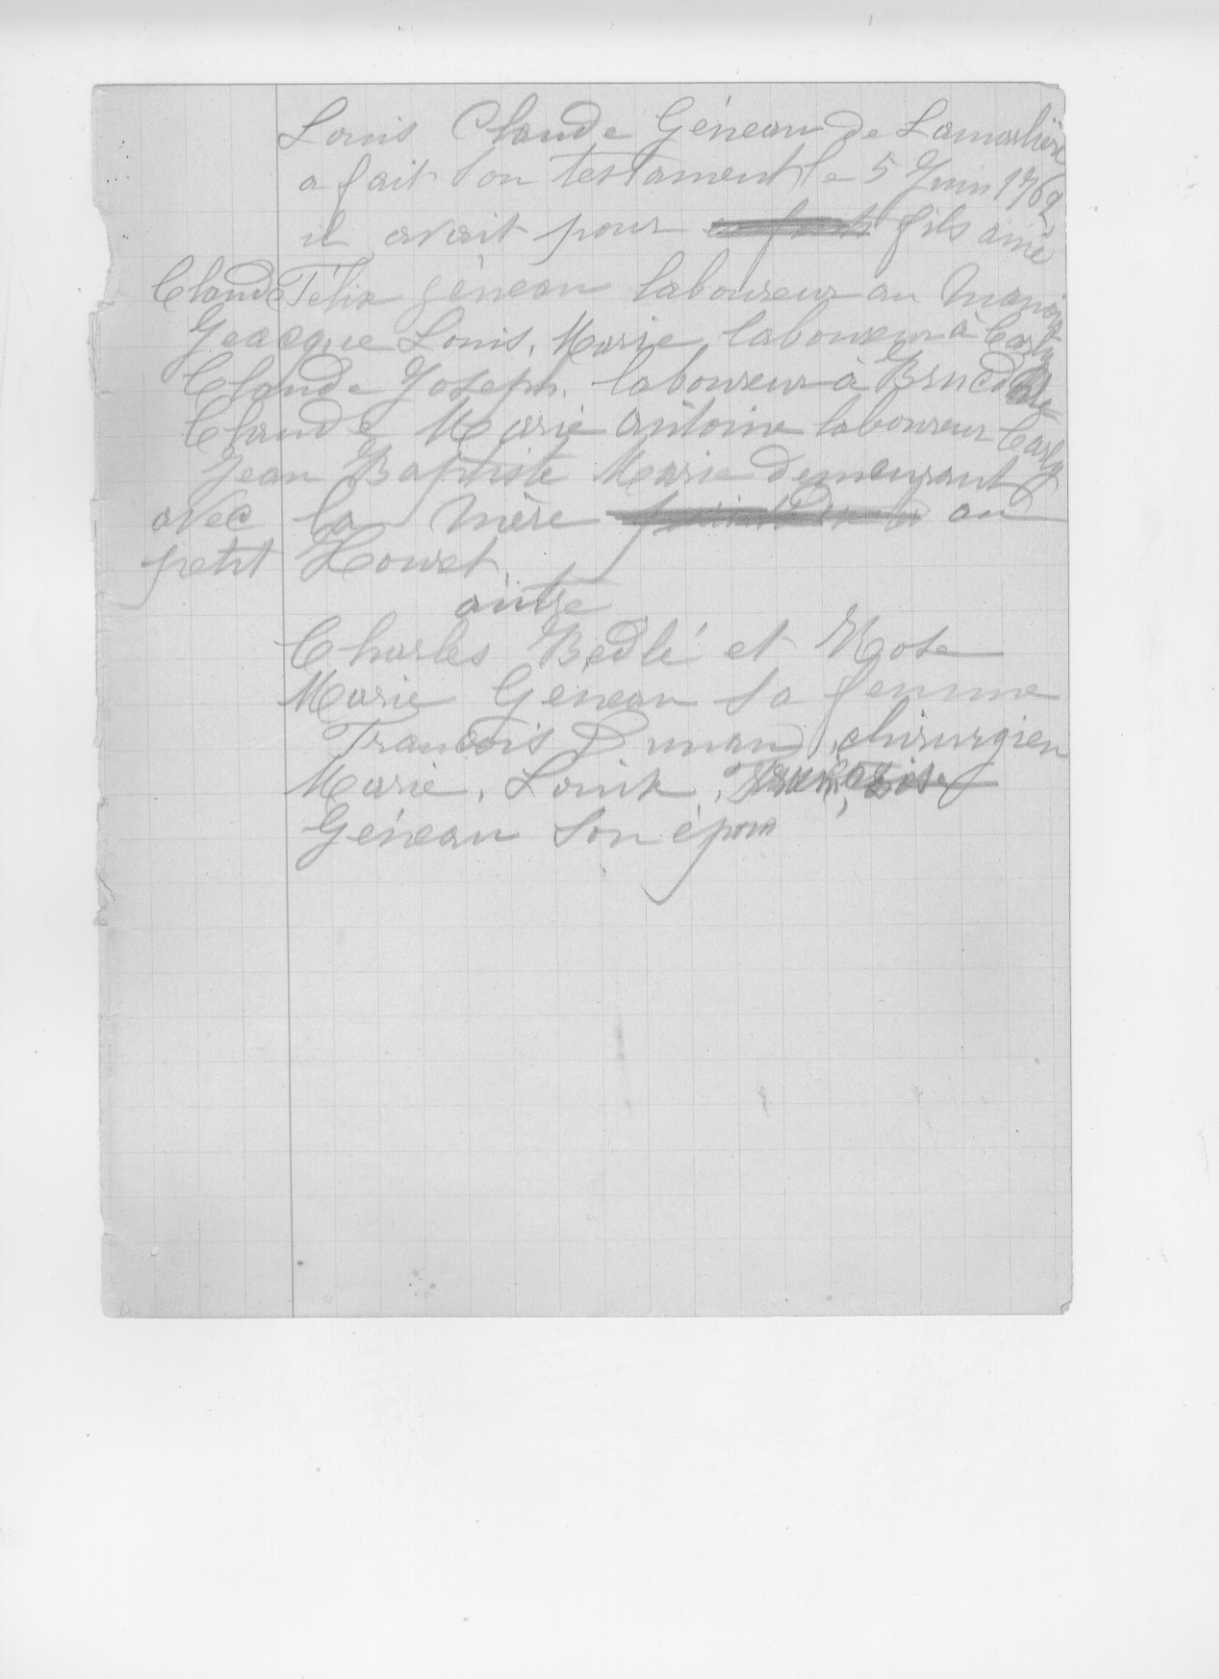 Louis Claude Géneau de Lamarlière
a fait son testament le 5 Juin 1762
il avait pour fils ainé
Claude Félix géneau laboureur au Manoir
Jeacque Louis, Marie, laboureur à Carly
Claude Joseph. laboureur à Brucdale
Claude Marie antoine laboureur Carly
Jean Baptiste Marie demeurant
avec la mère au
petit Houret
autre
Charles Bedlé et Rose
Marie Géneau sa femme
Francois Dunand, chirurgien
Marie, Louise,
Géneau son épous